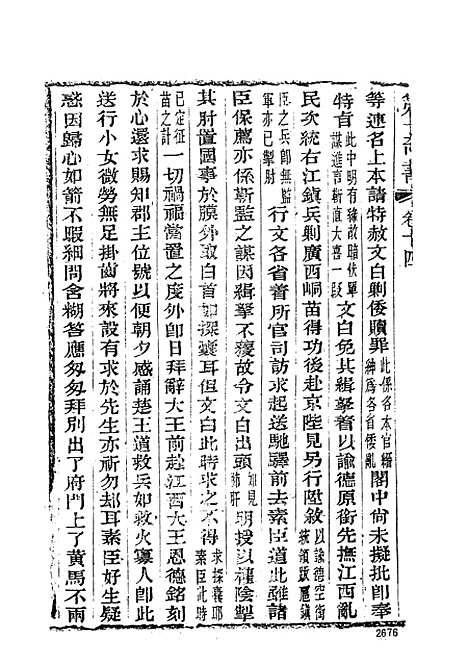 第一奇書 卷十四
等連名上本請特赦文白剿倭贖罪此係各本官縉紳為各省倭亂閣中尚未擬批即奉
特旨此中明有緣故暗伏單謀進言靳直大喜一段文白免其緝拏着以諭德原銜先撫江西亂
民次統右江鎮兵剿廣西峒苗得功後赴京陛見另行陞敘以諭德空銜領項惡鎮
臣之兵即無監軍亦已掣肘行文各省着所官司訪求起送馳驛前去素臣道此雖諸
臣保薦亦係靳監之謀因緝拏不獲故令文白出頭如見肺肝明授以權陰掣
其肘置國事於膜外取白首如探囊耳但文白此時求之不得求探襄耶素臣此時
已定征苗之計一切禍福當置之度外即日拜辭大王前赴江西大王恩德銘刻
於心還求賜知郡主位號以便朝夕感誦楚王道救兵如救火寡人即此
送行小女微勞無足掛齒將來設有求於先生亦祈勿却耳素臣好生疑
惑因歸心如箭不暇細問含糊答應匆匆拜別出了府門上了黃馬不雨
2676